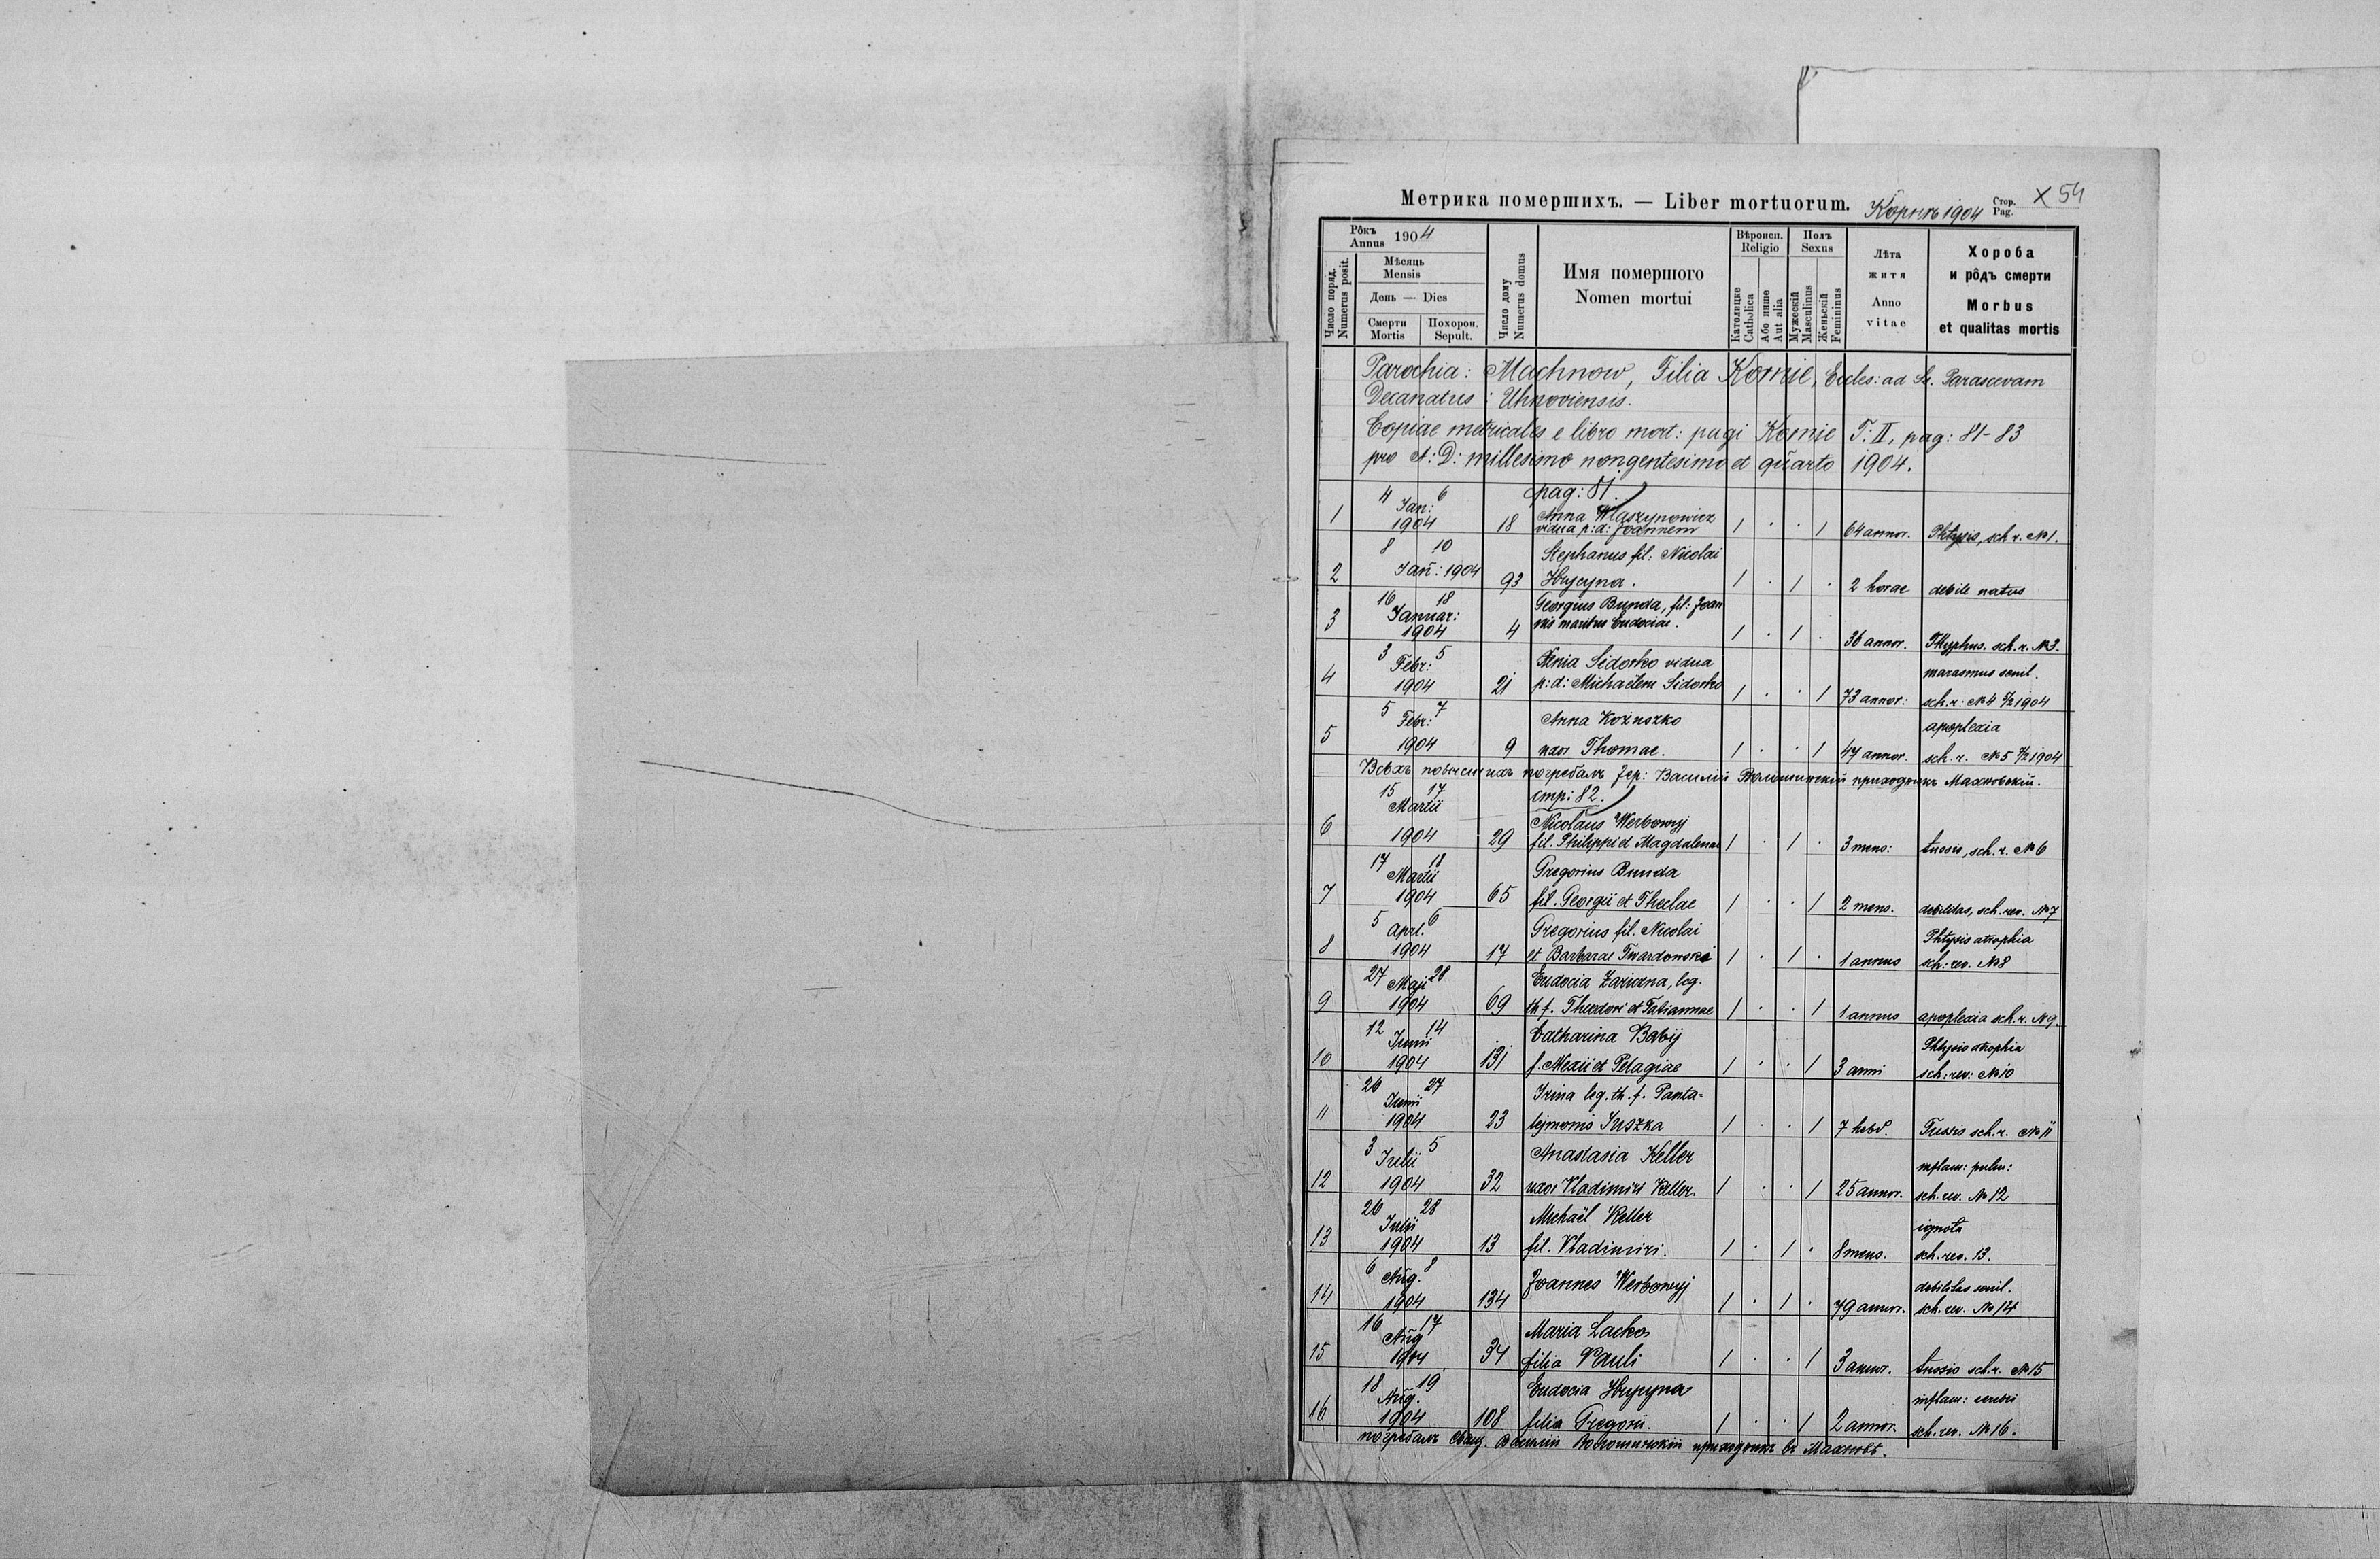 Метрика помершихъ. — Liber mortuorum. Корнѣ 1904 Стор. Pag. X 54
Рôкъ Annus 1904
Число поряд. Numerus posit.
Мѣсяць Mensis
День — Dies
Смерти Mortis
Похорон. Sepult.
Число дому Numerus domus
Имя помершого Nomen mortui
Вѣроисп. Religio
Католицке Catholica
Або инше Aut alia
Полъ Sexus
Мужескій Masculinus
Женьскій Femininus
Лѣта житя Anno vitae
Хороба и рôдъ смерти Morbus et qualitas mortis
Parochia: Machnow, Filia Kornie, Eccles: ad St. Parascevam
Decanatus: Uhnoviensis.
Copiae metricales e libro mort: pagi Kornie T: II, pag: 81-83
pro A: D: millesimo nongentesimo et quarto 1904.
pag: 81.
1 4 6 Jan: 1904 18 Anna Waszynowicz vidua p: d: Joannem 1 . . 1 64 annor. Phtysis, sch r. №1.
2 8 10 Jan: 1904 93 Stephanus fil: Nicolai Hrycyna. 1 . 1 . 2 horae debile natus
3 16 18 Januar: 1904 4 Georgius Bunda, fil: Joannis maritus Eudociae. 1 . 1 . 36 annor. Thyphus. sch. r. №3.
4 3 5 Febr: 1904 21 Xenia Sidorko vidua p: d: Michaëlem Sidorko 1 . . 1 73 annor: marasmus senil. sch. r: №4 1904
5 5 7 Febr: 1904 9 Anna Koźuszko uxor Thomae. 1 . . 1 47 annor. apoplexia sch. r. №5 1904
Всѣхъ повысшихъ погребалъ Іер: Василій Волошинскій приходникъ Махнôвскій.
стр: 82.
6 15 17 Martii 1904 29 Nicolaus Werbowyj fil. Philippi et Magdalenae 1 . 1 . 3 mens: tussis, sch. r. №6
7 17 18 Martii 1904 65 Gregorius Bunda fil. Georgii et Theclae 1 . . 1 2 mens. debilitas, sch. rev. №7
8 5 6 Aprl. 1904 17 Gregorius fil. Nicolai et Barbarae Twardowski 1 . 1 . 1 annus Phtysis atrophia sch: rev. №8
9 27 28 Maji 1904 69 Eudocia Zariczna, leg. th f. Theodori et Tatiannae 1 . . 1 1 annus apoplexia sch. r. №9.
10 12 14 Junii 1904 131 Catharina Babij f. Alexii et Pelagiae 1 . . 1 3 anni Phtysis atrophia sch: rev: №10
11 26 27 Junii 1904 23 Irina leg. th. f. Pantalejmonis Juszka 1 . . 1 7 hebd. Tussis sch. r. №11
12 3 5 Julii 1904 32 Anastasia Keller uxor Vladimiri Keller. 1 . . 1 25 annor. inflam: pulm: sch. rev. №12
13 26 28 Julii 1904 13 Michaël Keller fil. Vladimiri. 1 . 1 . 8 mens. ignota sch. rev. 13.
14 6 8 Aug. 1904 134 Joannes Werbowyj 1 . 1 . 79 annor. debilitas senil. sch. rev. №14
15 16 17 Aug 1904 34 Maria Lacko filia Pauli 1 . . 1 3 annor. tussis sch. r. №15
16 18 19 Aug. 1904 108 Eudocia Hrycyna filia Gregorii. 1 . . 1 2 annor. inflam: cerebri sch. rev. №16.
погребалъ Свящ. Василій Волошинскій приходникъ въ Махновѣ.